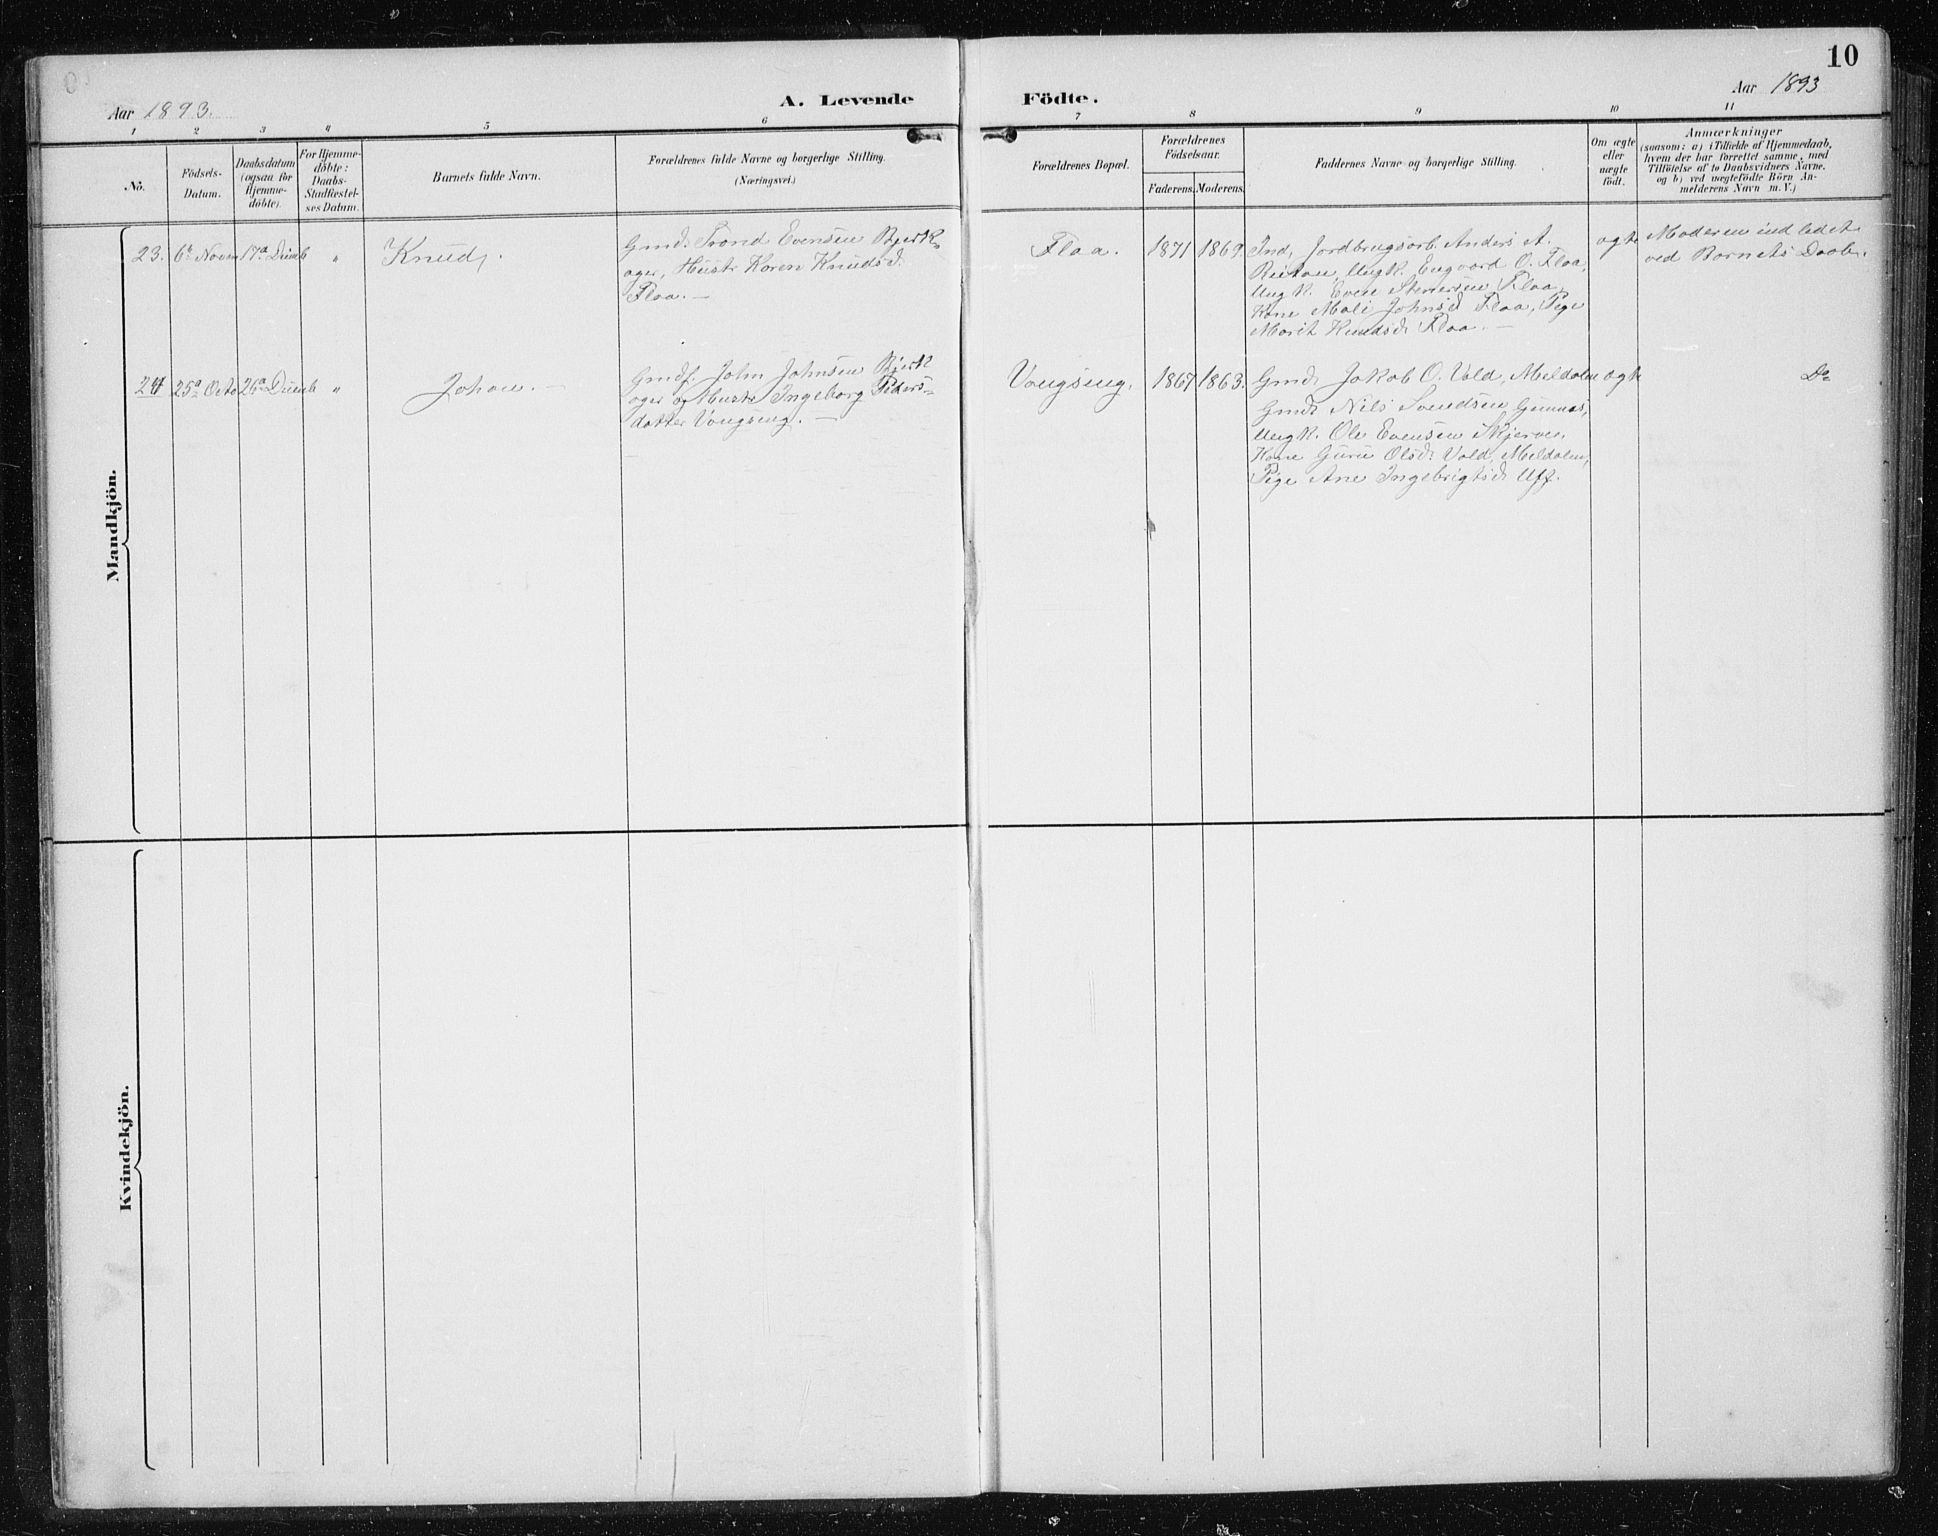 10
Aar 1893.
A. Levende Födte.
Aar 1893
1 2 3 4 5 6 7 8 9 10 11
No.
Födsels-
Datum.
Daabsdatum
(ogsaa for
Hjemme-
döbte).
For Hjemme-
döbte:
Daabs-
Stadfæstel-
ses Datum.
Barnets fulde Navn.
Forældrenes fulde Navne og borgerlige Stilling.
(Næringsvei.)
Forældrenes Bopæl.
Forældrenes
Födselsaar.
Faderens. Moderens.
Faddernes Navne og borgerlige Stilling.
Om ægte
eller
uægte
födt.
Anmærkninger
(saasom: a) i Tilfælde af Hjemmedaab,
hvem der har forrettet samme, med
Tilföielse af to Daabsvidners Navne.
og b) ved uægtefödte Börn An-
melderens Navn m. V.)
Mandkjön.
23. 6te Novem 17de Decemb "
Knud.
Gmd. Trond Evensen Bjerk-
ager, Hustr Karen Knudsd.
Flaa. —
Flaa.
1871 1869
Ind, Jordbrugsarb. Anders A.
Reitan, Ungk. Engvard O. Flaa,
Ungk. Even Stenersen Flaa,
Kone Mali Johnsd Flaa, Pige
Marit Knudsd. Flaa. —
ægte
Moderen indledet
ved Barnets Daab.
24 25de Octo 26de Decemb "
Johan. —
Gmdf. John Johnsen Bjerk
ager og Hustr Ingeborg Peders-
datter Vongseng. —
Vongseng.
1867 1863.
Gmd. Jakob O. Vold, Meldalen
Gmd. Nils Svendsen
Ungk. Ole Evensen Skjerve,
Kone Guru Olsd. Vold, Meldalen,
Pige Ane Ingebrigtsd. Uff.
ægte
Do
Kvindekjön.